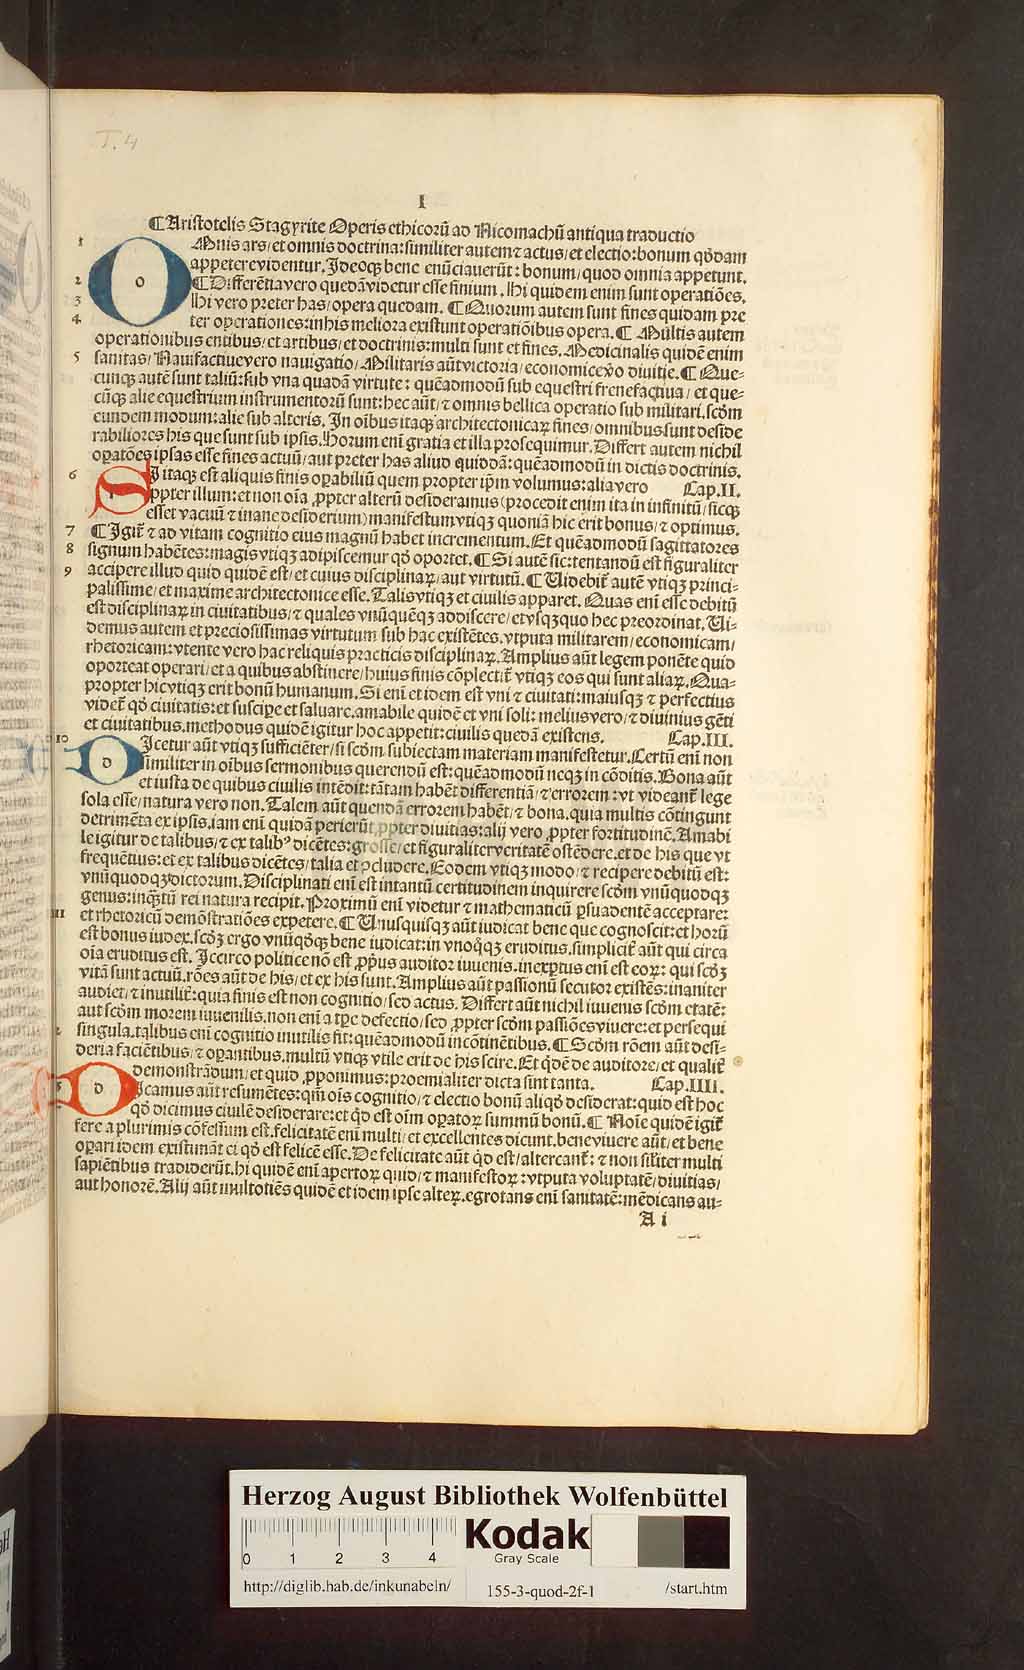 T. 4
I
¶Aristotelis Stagyrite Operis ethicorū ad Nicomachū antiqua traductio
1 OMnis ars/et omnis doctrina:similiter autem ⁊ actus/et electio:bonum qđdam
appetere videntur. Ideoqꝫ bene enūciauerūt: bonum/quod omnia appetunt.
2 ¶Differētia vero quedā videtur esse finium. Hi quidem enim sunt operatiōes.
3 Hi vero preter has/opera quedam. ¶Quorum autem sunt fines quidam pre
4 ter operationes:in his meliora existunt operatiōibus opera.¶ Multis autem
operationibus entibus/et artibus/et doctrinis:multi sunt et fines. Medicinalis quidē enim
5 sanitas/Nauifactiue vero nauigatio/Militaris aūt victoria/economice v̄o diuitie.¶Que-
cunqꝫ autē sunt taliū:sub vna quadā virtute: quēadmodū sub equestri frenefactiua/et que-
cūqꝫ alie equestrium instrumentorū sunt:hec aūt/⁊ omnis bellica operatio sub militari.scđm
eundem modum:alie sub alteris. In oībus itaqꝫ architectonicaꝝ fines/omnibus sunt deside
rabiliores his que sunt sub ipsis.Horum eni gratia et illa prosequimur.Differt autem nichil
oꝑatōes ipsas esse fines actuū/aut preter has aliud quiddā:quēadmodū in dictis doctrinis.
6 SI itaqꝫ est aliquis finis oꝑabiliū quem propter ip̄m volumus:alia vero Cap.II.
ꝓpter illum:et non oīa ꝓpter alterū desideramus (procedit enim ita in infinitū/sicqꝫ
esset vacuū ⁊ inane desiderium) manifestum vtiqꝫ quoniā hic erit bonus/⁊ optimus.
7 ¶Igit̄ ⁊ ad vitam cognitio eius magnū habet incrementum.Et quēadmodū sagittatores
8 signum habētes:magis vtiqꝫ adipiscemur qđ oportet.¶Si autē sic:tentandū est figuraliter
9 accipere illud quid quidē est/et cuius disciplinaꝝ/aut virtutū.¶Videbit̄ autē vtiqꝫ princi-
palissime/et maxime architectonice esse.Talis vtiqꝫ et ciuilis apparet. Quas eni esse debitū
est disciplinaꝝ in ciuitatibus/⁊ quales vnūquēqꝫ addiscere/et vsqꝫ quo hec preordinat.Vi-
demus autem et preciosissimas virtutum sub hac existētes.vtputa militarem/economicam/
rhetoricam:vtente vero hac reliquis practicis disciplinaꝝ.Amplius aūt legem ponēte quid
oporteat operari/et a quibus abstinere/huius finis cōplectit̄ vtiqꝫ eos qui sunt aliaꝝ.Qua-
propter hic vtiqꝫ erit bonū humanum.Si eni et idem est vni ⁊ ciuitati:maiusqꝫ ⁊ perfectius
videt̄ qđ ciuitatis:et suscipe et saluare.amabile quidē et vni soli: melius vero/⁊ diuinius gēti
et ciuitatibus.methodus quidē igitur hoc appetit:ciuilis quedā existens. Cap.III.
10 DIcetur aūt vtiqꝫ sufficiēter/si scđm subiectam materiam manifestetur.Certū eni non
similiter in oībus sermonibus querendū est:quēadmodū neqꝫ in cōditis.Bona aūt
et iusta de quibus ciuilis intēdit:tātam habēt differentiā/⁊ errorem:vt videant̄ lege
sola esse/natura vero non.Talem aūt quendā errorem habēt/⁊ bona.quia multis cōtingunt
detrimēta ex ipsis.iam eni quidā perierūt ꝓpter diuitias:alij vero ꝓpter fortitudinē.Amabi
le igitur de talibus/⁊ ex talibꝰ dicētes:grosse/et figuraliter veritatē ostēdere.et de his que vt
frequētius:et ex talibus dicētes/talia et ꝯcludere.Eodem vtiqꝫ modo/⁊ recipere debitū est:
vnūquodqꝫ dictorum.Disciplinati eni est intantū certitudinem inquirere scđm vnūquodqꝫ
genus:inqꝫtū rei natura recipit.Proximū eni videtur ⁊ mathematicū ꝑsuadentē acceptare:
11 et rhetoricū demōstratiōes expetere.¶Vnusquisqꝫ aūt iudicat bene que cognoscit:et horū
est bonus iudex.scđꝫ ergo vnūqđqꝫ bene iudicat:in vnoqꝫ eruditus.simplicit̄ aūt qui circa
oīa eruditus est. Idcirco politice nō est ꝓpꝰus auditor iuuenis.inexꝑtus eni est eoꝝ: qui scđꝫ
vitā sunt actuū.rōes aūt de his/et ex his sunt.Amplius aūt passionū secutor existēs:inaniter
audiet/⁊ inutilit̄:quia finis est non cognitio/sed actus. Differt aūt nichil iuuenis scđm etatē:
aut scđm morem iuuenilis.non eni a tp̄e defectio/sed ꝓpter scđm passiōes viuere:et persequi
2 singula.talibus eni cognitio inutilis fit:quēadmodū incōtinētibus.¶Scđm rōem aūt desi-
deria faciētibus/⁊ oꝑantibus.multū vtiqꝫ vtile erit de his scire.Et qđē de auditore/et qualit̄
demonstrādum/et quid ꝓponimus:proemialiter dicta sint tanta. Cap.IIII.
3 DIcamus aūt resumētes:qm̄ ois cognitio/⁊ electio bonū aliqđ desiderat:quid est hoc
qđ dicimus ciuilē desiderare:et qđ est oīm oꝑatoꝝ summū bonū.¶ Noīe quidē igit̄
fere a plurimis cōfessum est.felicitatē eni multi/et excellentes dicunt.bene viuere aūt/et bene
oꝑari idem existimāt ei qđ est felicē esse.De felicitate aūt qđ est/altercant̄: ⁊ non sil̄iter multi
sapiētibus tradiderūt.hi quidē eni apertoꝝ quid/⁊ manifestoꝝ:vtputa voluptatē/diuitias/
aut honorē.Alij aūt multotiēs quidē et idem ipse alteꝝ.egrotans eni sanitatē:mēdicans au-
A i
Herzog August Bibliothek Wolfenbüttel
0 1 2 3 4
Kodak
Gray Scale
http://diglib.hab.de/inkunabeln/ 155-3-quod-2f-1 /start.htm